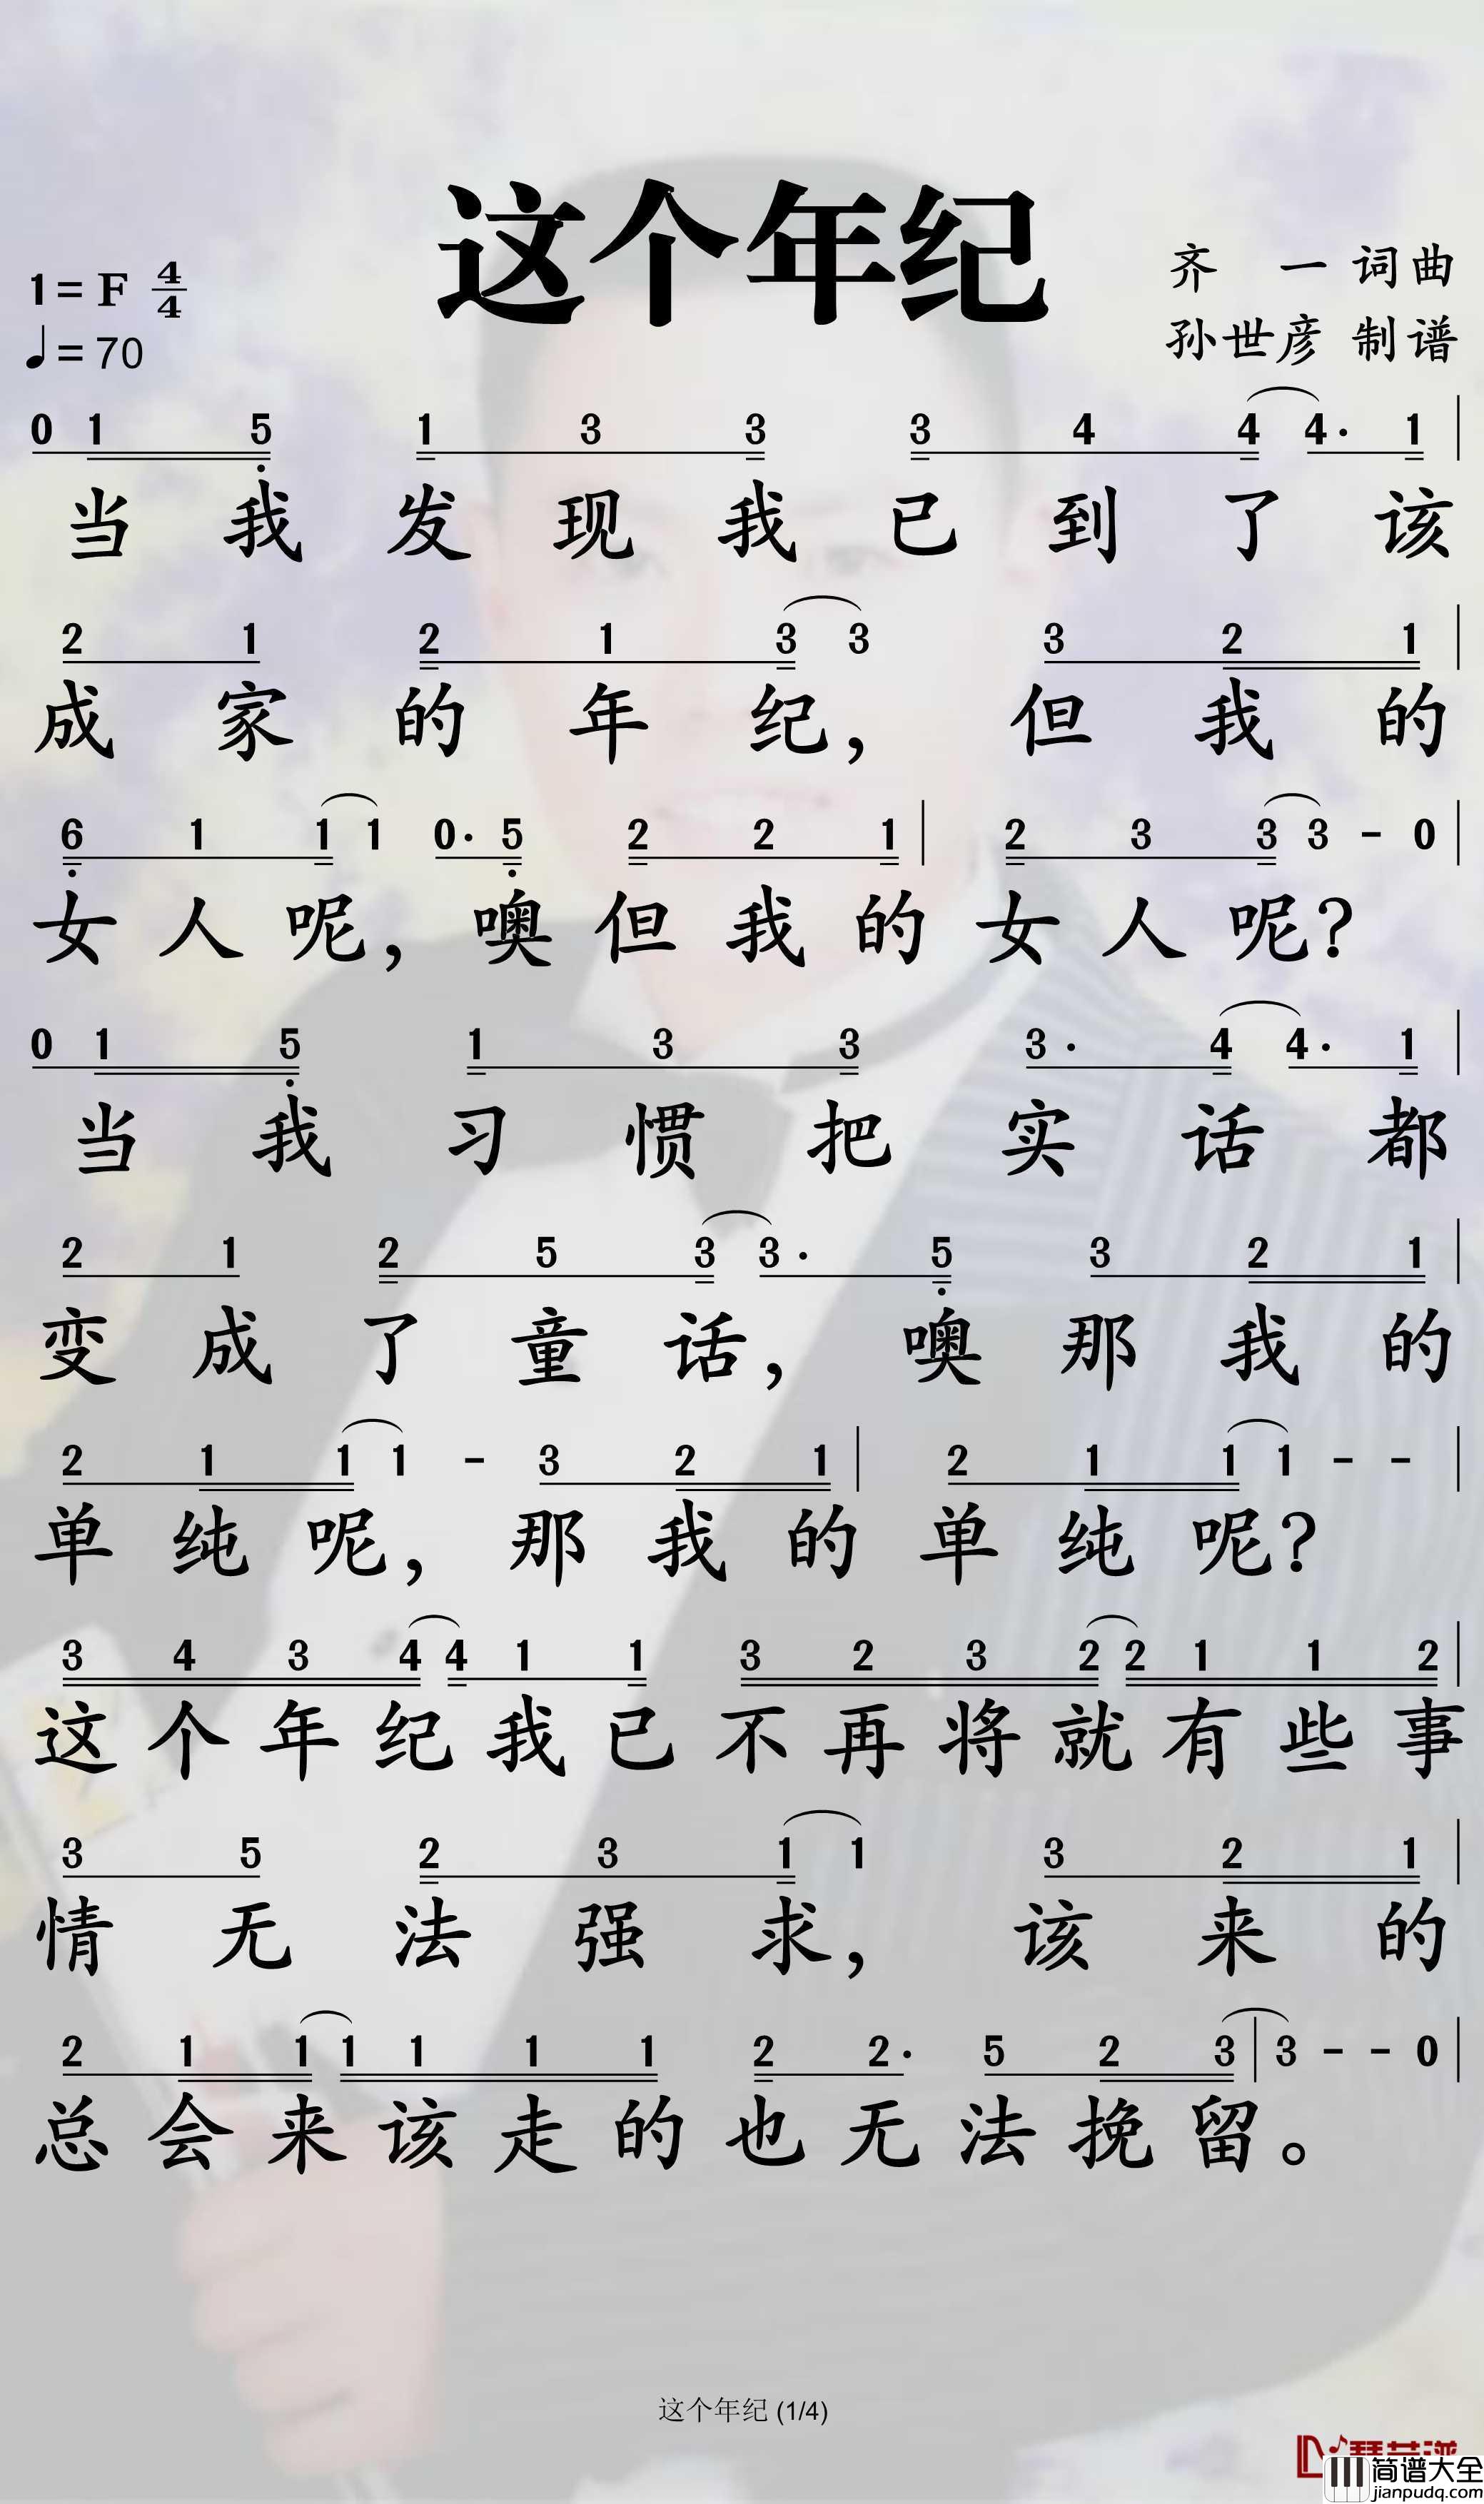 这个年纪
1=F 4/4
♩=70
齐 一 词曲
孙世彦 制谱
0 1 5 1 3 3 3 4 4 4· 1
当我发现我已到了该
2 1 2 1 3 3 3 2 1
成家的年纪，但我的
6 1 1 1 0· 5 2 2 1 2 3 3 3 - 0
女人呢，噢但我的女人呢？
0 1 5 1 3 3 3· 4 4· 1
当我习惯把实话都
2 1 2 5 3 3· 5 3 2 1
变成了童话，噢那我的
2 1 1 1 - 3 2 1 2 1 1 1 - -
单纯呢，那我的单纯呢？
3 4 3 4 4 1 1 3 2 3 2 2 1 1 2
这个年纪我已不再将就有些事
3 5 2 3 1 1 3 2 1
情无法强求，该来的
2 1 1 1 1 1 1 2 2· 5 2 3 3 - - 0
总会来该走的也无法挽留。
这个年纪 (1/4)
简谱大全
jianpudq.com